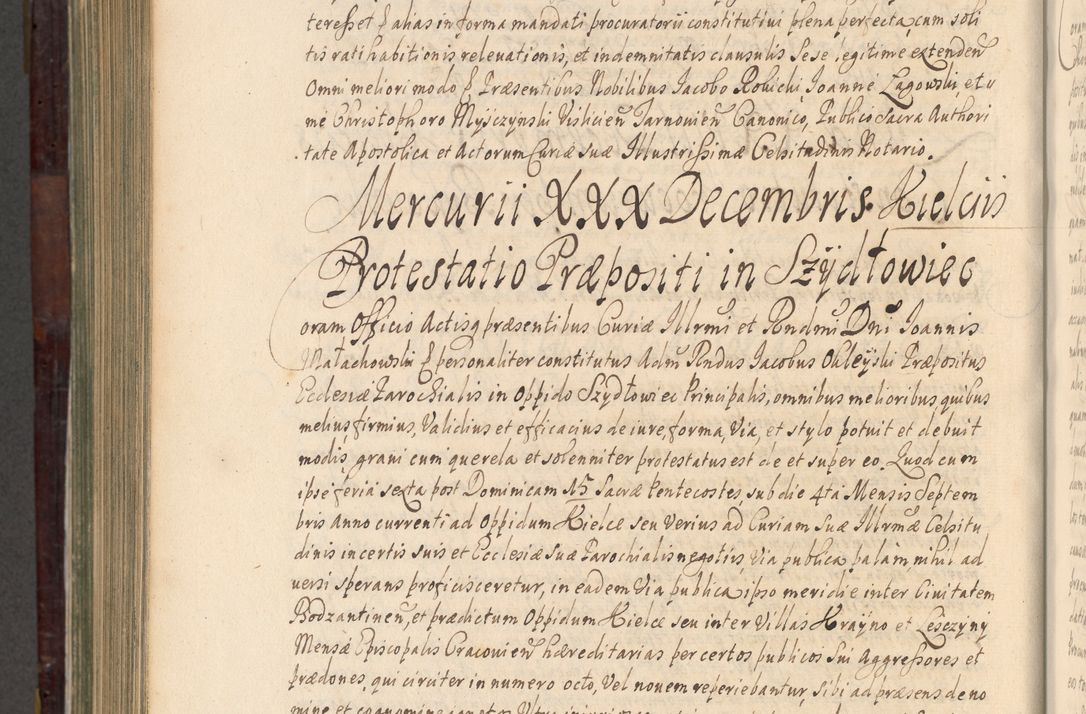 teresset P alias in forma mandati procuratorii constitutivi plena perfecta, cum soli
tis rati habitionis relevationis, et indemnitatis clausulis sese legitime extendeñ
Omni meliori modo P. Præsentibus Nobilibus Jacobo Robicki, Joanne Lagowski, et
me Christophoro Mÿsczynski Vislicieñ Tarnovieñ Canonico, Publico Sacra Authori
tate Apostolica et Actorum Curiæ suæ Illustrissimæ Celsitudinis Notario.
Mercurii XXX Decembris Kielciis
Protestatio Præpositi in Szÿdłowiec
Coram Officio Actisq præsentibus Curiæ Illrmi et Rndmi Dni Joannis
Małachowski P personaliter constitutus Adm Rndus Jacobus Okleÿski Præpositus
Ecclesiæ Parochialis in Oppido Szÿdłowiec Principalis, omnibus melioribus quibus
melius, firmius, Validius et efficacius de iure, forma, Via, et stylo potuit et debuit
modis, gravi cum querela et solenniter protestatus est de et super eo. Quod cum
ipse feria sexta post Dominicam 15 Sacræ Pentecostes sub die 4ta Mensis Septem
bris Anno currenti ad Oppidum Kielce seu verius ad Curiam Suæ Illrmæ Celsitu
dinis incertis suis et Ecclesiæ suæ Parochialis negotiis Via publica palam nihil ad
versi sperans proficisceretur, in eadem Via publica ipso meridie inter Civitatem
Bodzantineñ, et prædictum Oppidum Kielce seu inter Villas Kraÿno et Lesczyny
Mensæ Episcopalis Cracovieñ hæreditarias per certos publicos sui Aggressores et
prædones, qui circiter in numero octo, Vel novem reperiebantur, sibi ad præsens de no
mine et cognomine